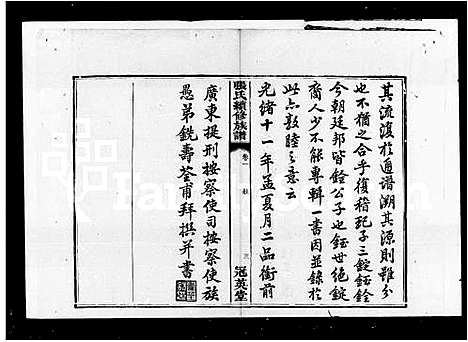 其流復於通譜溯其源則雖分
也不猶之合乎復稽玘子三錠鈺銓
今朝廷邦皆銓公子也鈺世絕錠
裔人少不能專輯一書因並錄於
此亦敦睦之意云
光緒十一年孟夏月二品銜前
張氏續修族譜
卷一
冠英堂
廣東提刑按察使司按察使族
愚弟銑壽荃甫拜撰并書